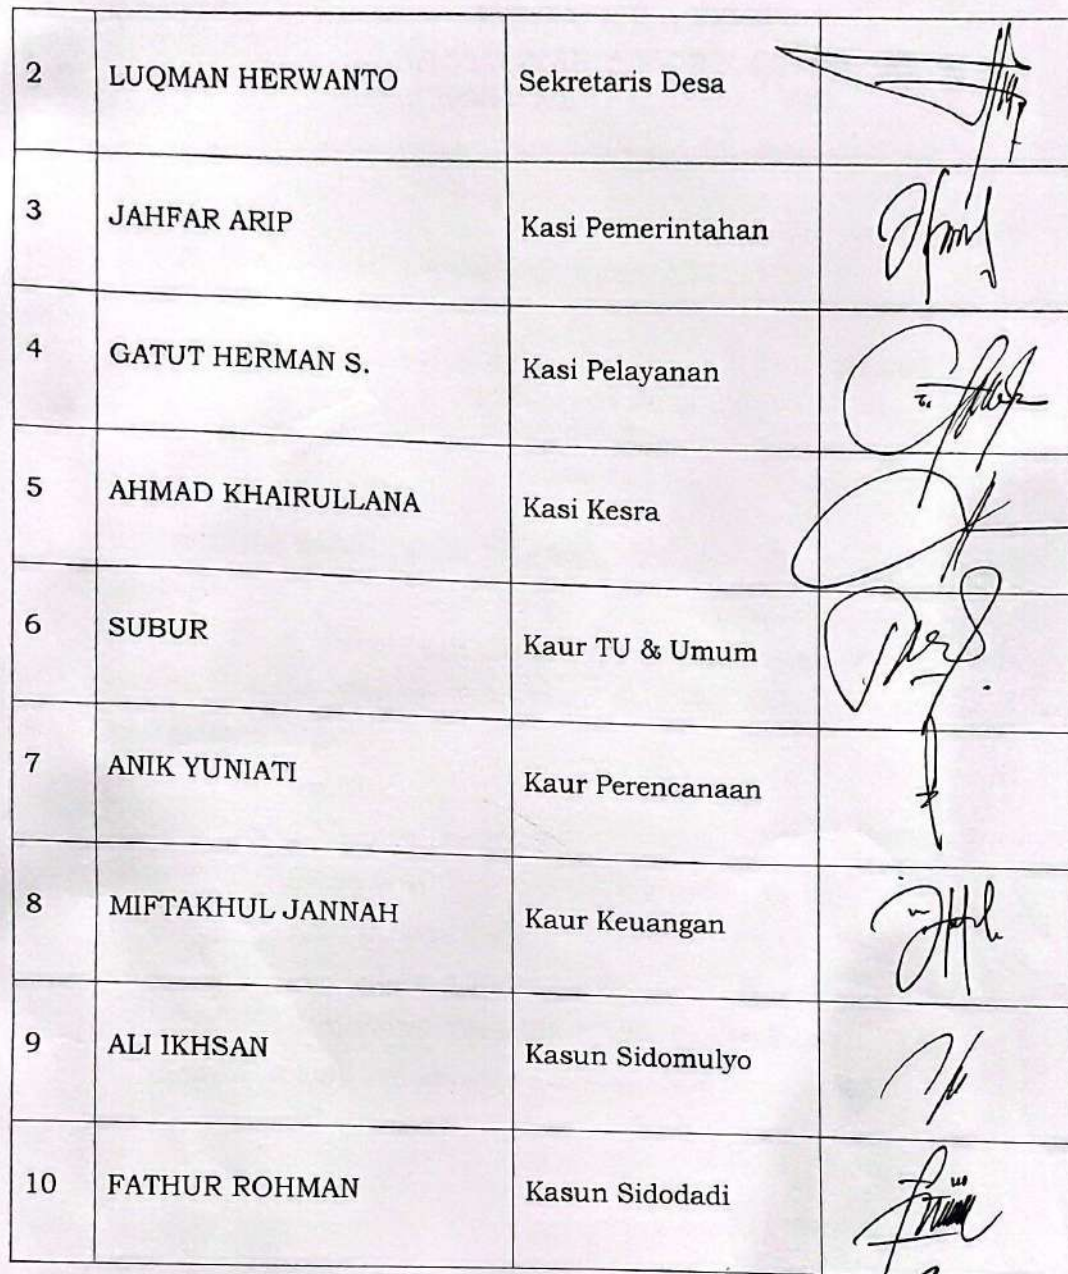 2 LUQMAN HERWANTO Sekretaris Desa
3 JAHFAR ARIP Kasi Pemerintahan
4 GATUT HERMAN S. Kasi Pelayanan
5 AHMAD KHAIRULLANA Kasi Kesra
6 SUBUR Kaur TU & Umum
7 ANIK YUNIATI Kaur Perencanaan
8 MIFTAKHUL JANNAH Kaur Keuangan
9 ALI IKHSAN Kasun Sidomulyo
10 FATHUR ROHMAN Kasun Sidodadi